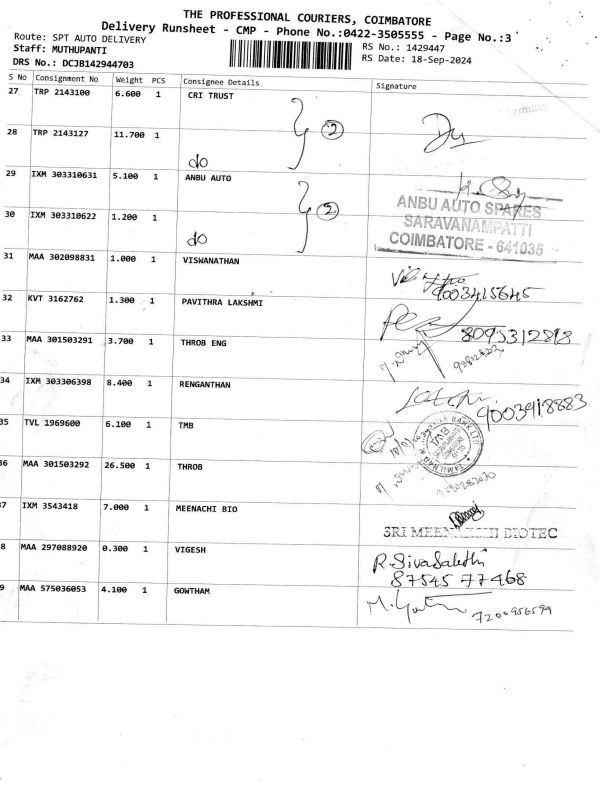 THE PROFESSIONAL COURIERS, COIMBATORE
Delivery Runsheet - CMP - Phone No.:0422-3505555 - Page No.:3
Route: SPT AUTO DELIVERY
RS No.: 1429447
Staff: MUTHUPANTI
RS Date: 18-Sep-2024
DRS No.: DCJB142944703
S No Consignment No Weight PCS Consignee Details Signature
27 TRP 2143100 6.600 1 CRI TRUST
2
28 TRP 2143127 11.700 1
do
29 IXM 303310631 5.100 1 ANBU AUTO
ANBU AUTO SPARES
2
30 IXM 303310622 1.200 1
SARAVANAMPATTI
do
COIMBATORE - 641035
31 MAA 302098831 1.000 1 VISWANATHAN
9003415645
32 KVT 3162762 1.300 1 PAVITHRA LAKSHMI
33 MAA 301503291 3.700 1 THROB ENG
34 IXM 303306398 8.400 1 RENGANTHAN
9003918883
35 TVL 1969600 6.100 1 TMB
36 MAA 301503292 26.500 1 THROB
37 IXM 3543418 7.000 1 MEENACHI BIO
8 MAA 297088920 0.300 1 VIGESH
R.SivaSakthi
87545 77468
9 MAA 575036053 4.100 1 GOWTHAM
7200956599